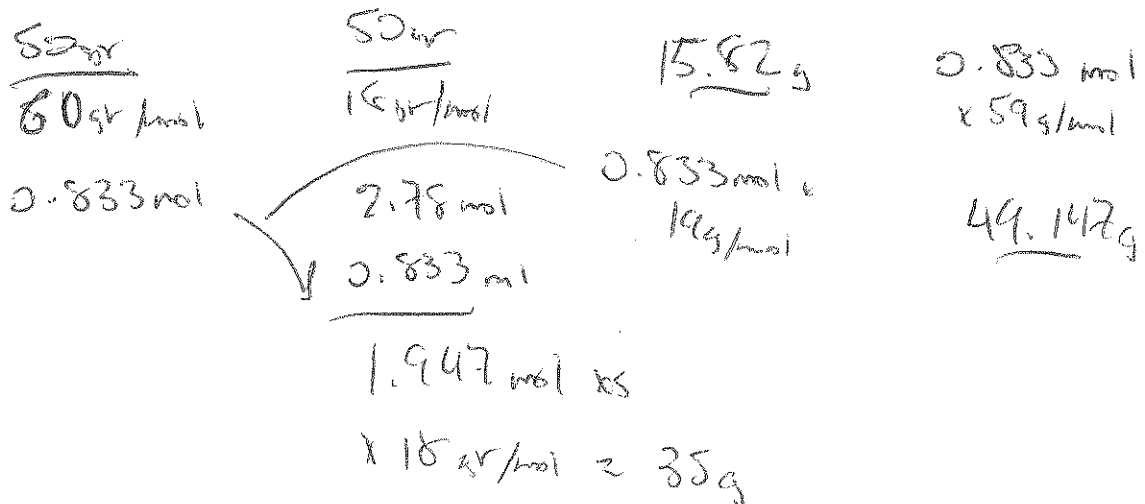 50gr
60gr/mol
0.833mol
50gr
18gr/mol
2.78 mol
0.833 ml
1.947 mol xs
x 18 gr/mol = 35g
15.82g
0.833mol x
19g/mol
0.833 mol
x 59g/mol
49.147g